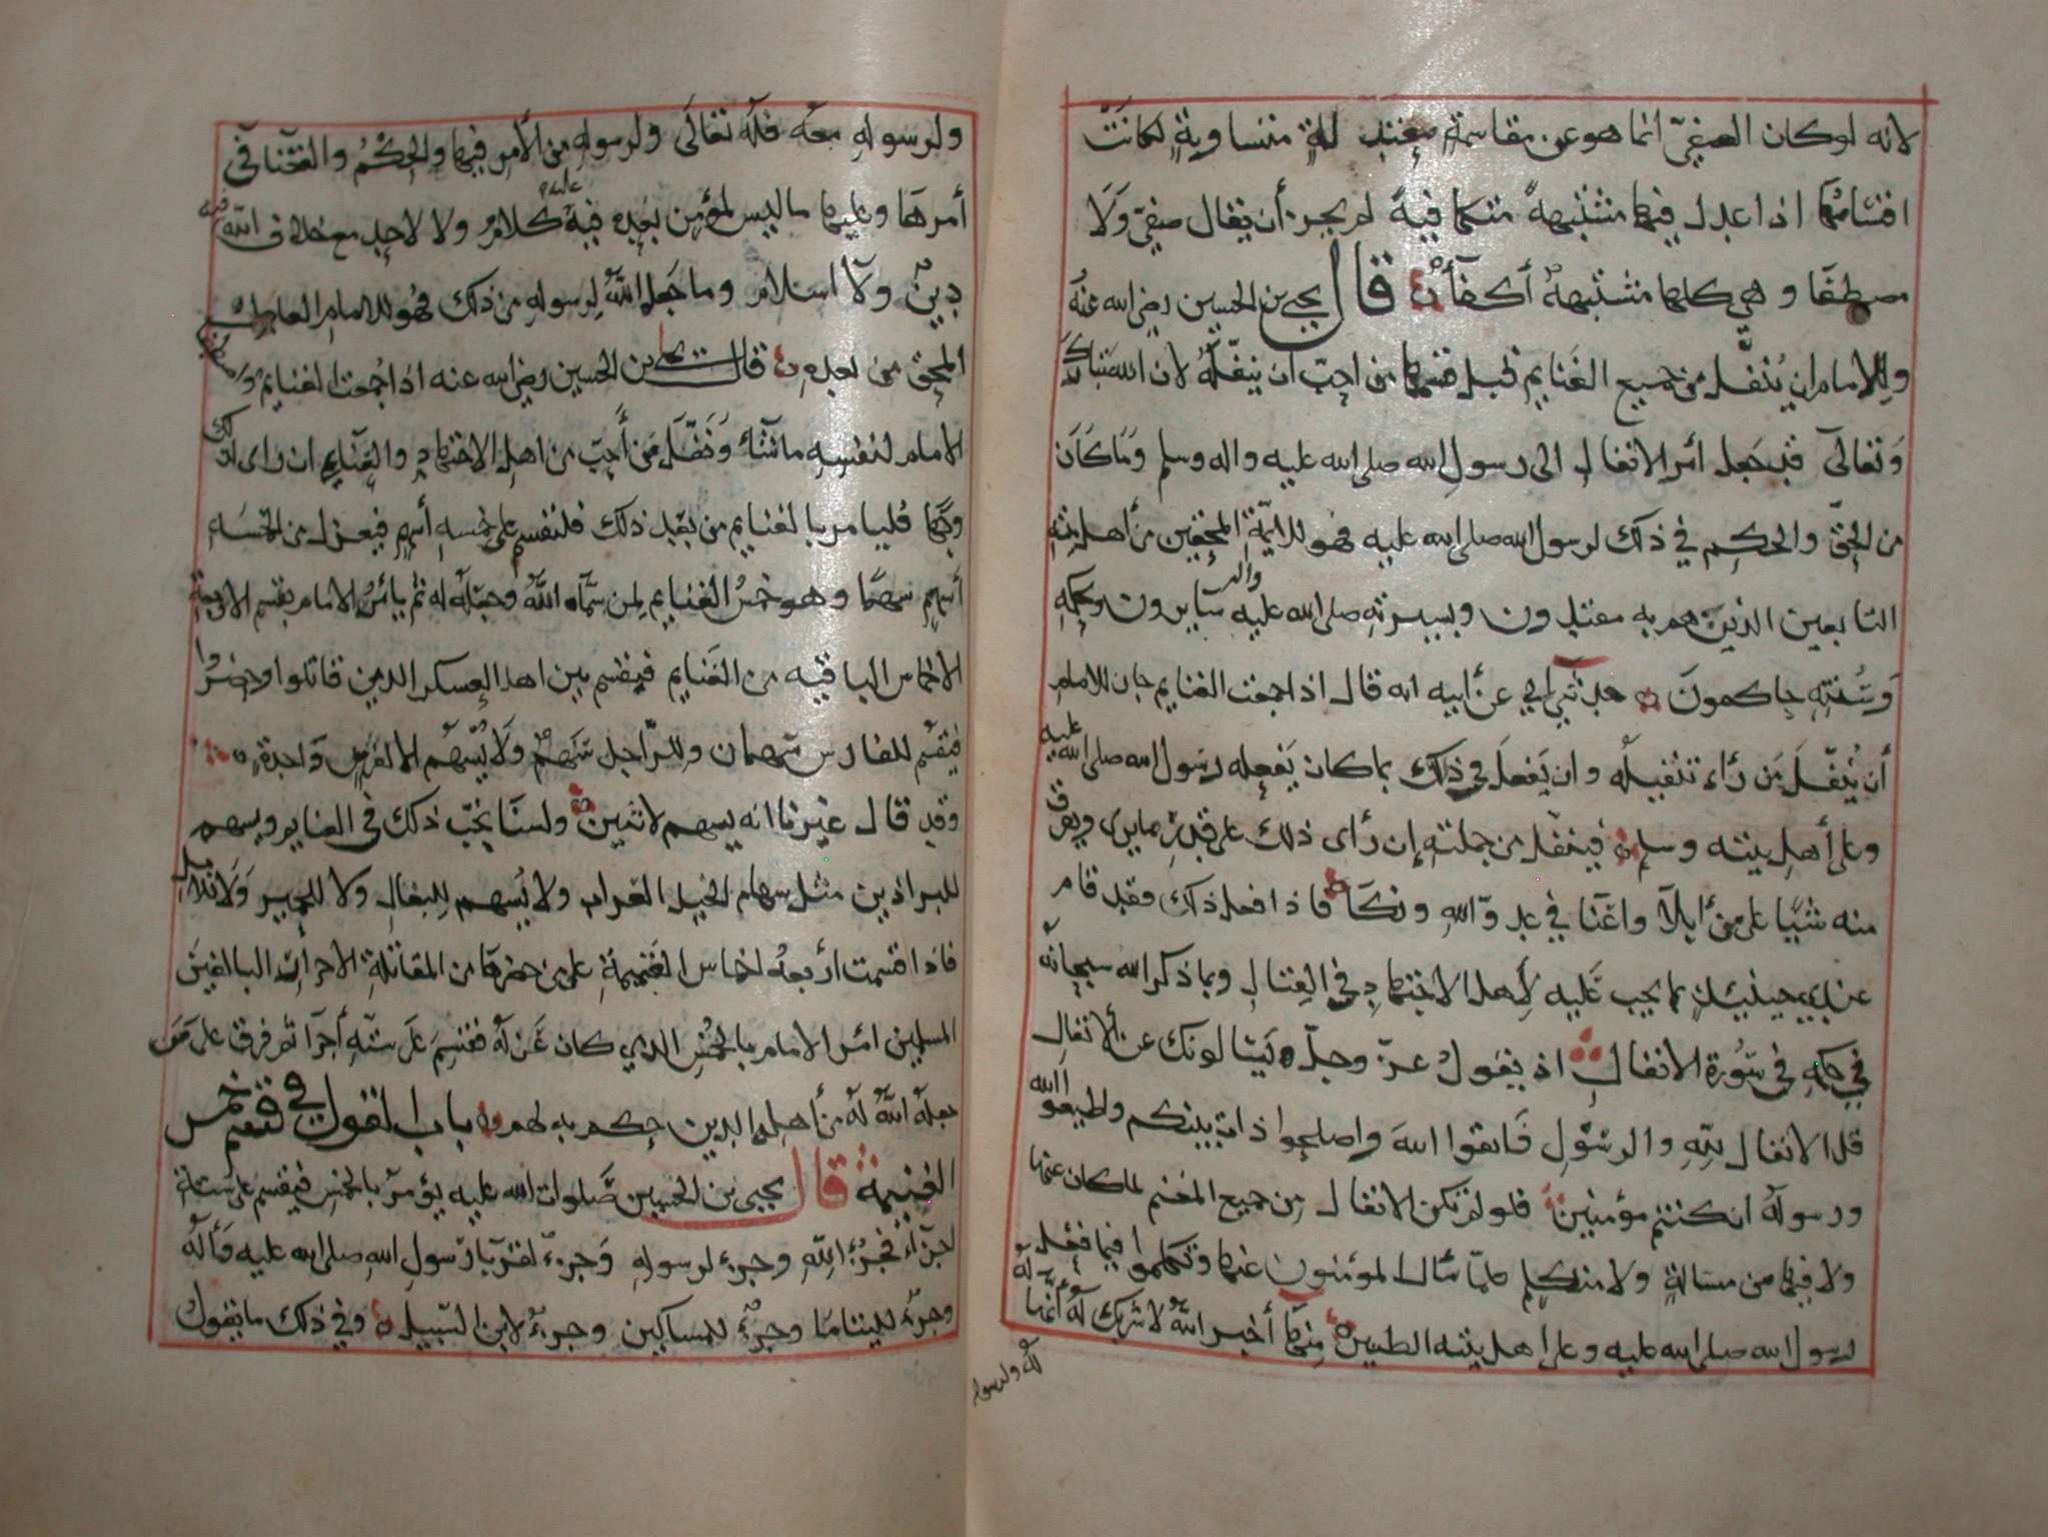 لانه لوكان الصفيّ انما هو عن مقاسمة معتدلة متساوية لكانت
اقسامها اذا عدل فيها مشتبهة متكافية لم يجز أن يقال صفيّ ولا
مصطفا وهي كلها مشتبهة أكفآء قال يحيى بن الحسين رضي الله عنه
وللامام ان ينفّل من جميع الغنايم قبل قسمها من احبّ ان ينفّله لان الله تبارك
وتعالى قد جعل امر الانفال الى رسول الله صلى الله عليه واله وسلم وما كان
من الحق والحكم في ذلك لرسول الله صلى الله عليه فهو للايمة المحقين من أهل بيته
التابعين الذين هم به مقتدون وبسيرته صلى الله عليه واله سايرون وبحكمه
وسنته حاكمون حدثني ابي عن أبيه انه قال اذا جمعت الغنايم جاز للامام
أن ينفّل من رأى تنفيله وان يفعل في ذلك بما كان يفعله رسول الله صلى الله عليه
وعلى أهل بيته وسلم فينفل من جملته إن رأى ذلك على قدر ما يرى ويفرق
منه شيئا على من أبلا واغنا في عدو الله ونكا فاذا فعل ذلك فقد قام
عند حينئذ بما يجب عليه لأهل الاجتهاد في القتال وبما ذكر الله سبحانه
في حكمه في سورة الانفال اذ يقول عز وجل ويسالونك عن الانفال
قل الانفال لله والرسول فاتقوا الله واصلحوا ذات بينكم واطيعوا الله
ورسوله ان كنتم مؤمنين فلو لم تكن الانفال من جميع المغنم لما كان عنها
ولا فيها من مسالة ولا متكلم فلما سال المؤمنون عنها وتكلموا فيما فعله
رسول الله صلى الله عليه وعلى اهل بيته الطيبين منها أخبر الله لا شريك له أنها له
لله ولرسوله
ولرسوله معه فلله تعالى ولرسوله من الأمر فيها والحكم والغنا في
أمرهما وعليهما ما ليس لمؤمن بعده فيه عليهم كلام ولا لاحد مع خلاف الله فيه
دين ولا اسلام وما جعل الله لرسوله من ذلك فهو للامام العادل
المحق من بعده قال يحيى بن الحسين رضي الله عنه اذا جمعت الغنايم
الامام لنفسه ما شاء ونفّل من أحبّ من اهل الاجتهاد والغنايم ان راى ذلك
وجها فليامر بالغنايم من بعد ذلك فلتقسم على خمسة أسهم فيعزل من الخمسة
أسهم سهما وهو خمس الغنايم لمن سماه الله وجعله له ثم يامر الامام بقسم الاربعة
الاخماس الباقيه من الغنايم فيقسم بين اهل العسكر الذين قاتلوا وحضروا
فيقسم للفارس سهمان وللراجل سهم ولا يسهم الا لفرس واحدة
وقد قال غيرنا انه يسهم لاثنين ولسنا نحب ذلك في الغنايم ويسهم
للبراذين مثل سهام الخيل العراب ولا يسهم للبغال ولا للحمير ولا للابل
فاذا اقسمت أربعة اخماس الغنيمة على من حضرها من المقاتلة الاحرار البالغين
المسلمين امر الامام بالخمس الذي كان عزله فقسم على ستة أجزا ثم فرق على من
جعله الله له من أهله الذين حكم به لهم باب القول في قسم خمس
الغنيمة قال يحيى بن الحسين صلوات الله عليه يؤمر بالخمس فيقسم على ستة
اجزاء فجزء لله وجزء لرسوله وجزء لقربا رسول الله صلى الله عليه وآله
وجزء لليتاما وجزء للمساكين وجزء لابن السبيل وفي ذلك ما يقول